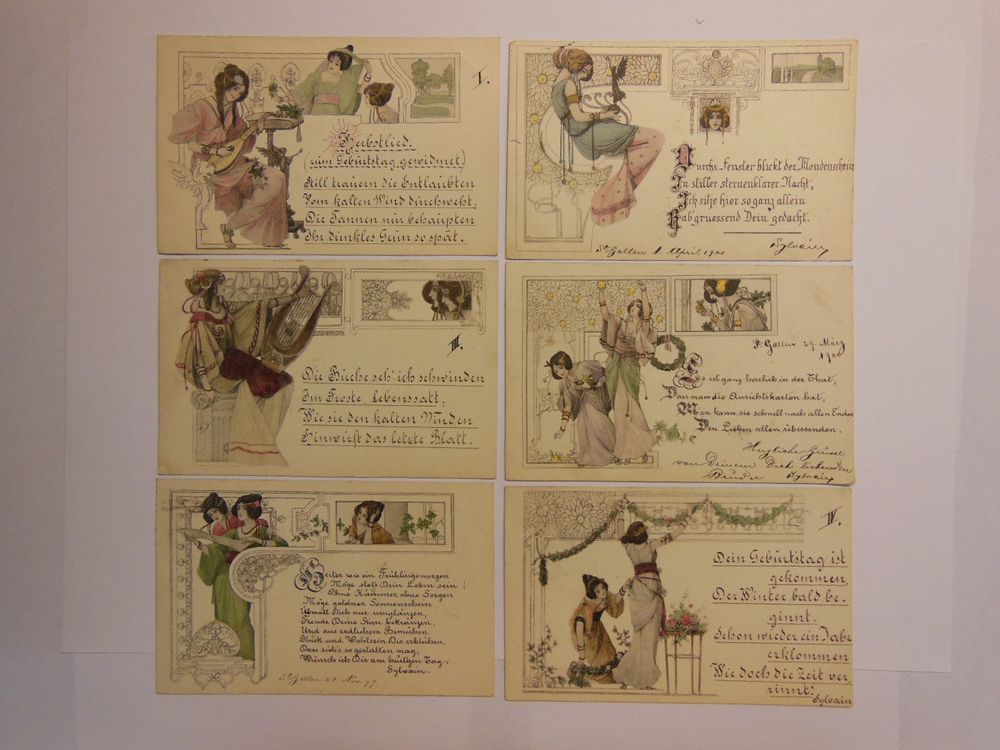 I.
Herbstlied.
(zum Geburtstag gewidmet)
Still trauern die Entlaubten
Vom kalten Wind durchweht,
Die Tannen nur behaupten
Ihr dunkles Grün so spät.
Durchs Fenster blickt der Mondenschein
In stiller sternenklarer Nacht,
Ich sitze hier so ganz allein
Hab' gruessend Dein gedacht.
St. Gallen 1. April 1900
Sylvain
III.
Die Buche seh' ich schwinden
Im Froste, Lebenssatt,
Wie sie den kalten Winden
Hinwirft das letzte Blatt.
St. Gallen 29. März
1900
Es ist ganz herzlich in der That,
Dass man die Ansichtskarten hat,
Man kann sie schnell nach allen Enden
Den Lieben allen übersenden.
Herzliche Grüsse
von Deinem Dich liebenden
Bruder Sylvain
Heiter wie ein Frühlingsmorgen
Möge stets Dein Leben sein!
Ohne Kummer ohne Sorgen
Möge goldner Sonnenschein
Überall Dich nur umglänzen,
Freude Deine Stirn bekränzen,
Und aus redlichem Bemühen
Glück und Wohlsein Dir erblühen.
Dass sich's so gestalten mag,
Wünsch ich Dir am heut'gen Tag.
Sylvain.
St. Gallen 20. Nov. 99.
IV.
Dein Geburtstag ist
gekommen,
Der Winter bald be-
ginnt.
Schon wieder ein Jahr
erklommen
Wie doch die Zeit ver
rinnt!
Sylvain